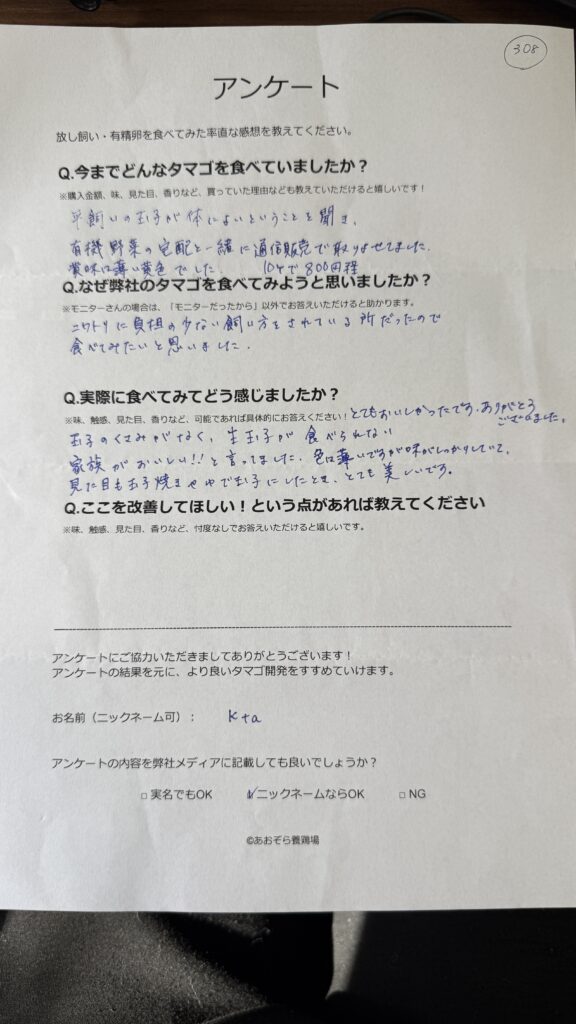 308
アンケート
放し飼い・有精卵を食べてみた率直な感想を教えてください。
Q.今までどんなタマゴを食べていましたか？
※購入金額、味、見た目、香りなど、買っていた理由なども教えていただけると嬉しいです！
平飼いの玉子が体によいということを聞き、
有機野菜の宅配と一緒に通信販売で取りよせてました。
賞味は薄い黄色でした。 10ケで800円程
Q.なぜ弊社のタマゴを食べてみようと思いましたか？
※モニターさんの場合は、「モニターだったから」以外でお答えいただけると助かります。
ニワトリに負担の少ない飼い方をされている所だったので
食べてみたいと思いました。
Q.実際に食べてみてどう感じましたか？
※味、触感、見た目、香りなど、可能であれば具体的にお答えください！とてもおいしかったです。ありがとう
ございました。
玉子のくさみがなく、生玉子が食べられない
家族がおいしい!!と言ってました。色は薄いですが味がしっかりしていて、
見た目も玉子焼きやゆで玉子にしたとき、とても美しいです。
Q.ここを改善してほしい！という点があれば教えてください
※味、触感、見た目、香りなど、忖度なしでお答えいただけると嬉しいです。
アンケートにご協力いただきましてありがとうございます！
アンケートの結果を元に、より良いタマゴ開発をすすめていけます。
お名前（ニックネーム可）： k+a
アンケートの内容を弊社メディアに記載しても良いでしょうか？
□ 実名でもOK ☑ ニックネームならOK □ NG
©あおぞら養鶏場